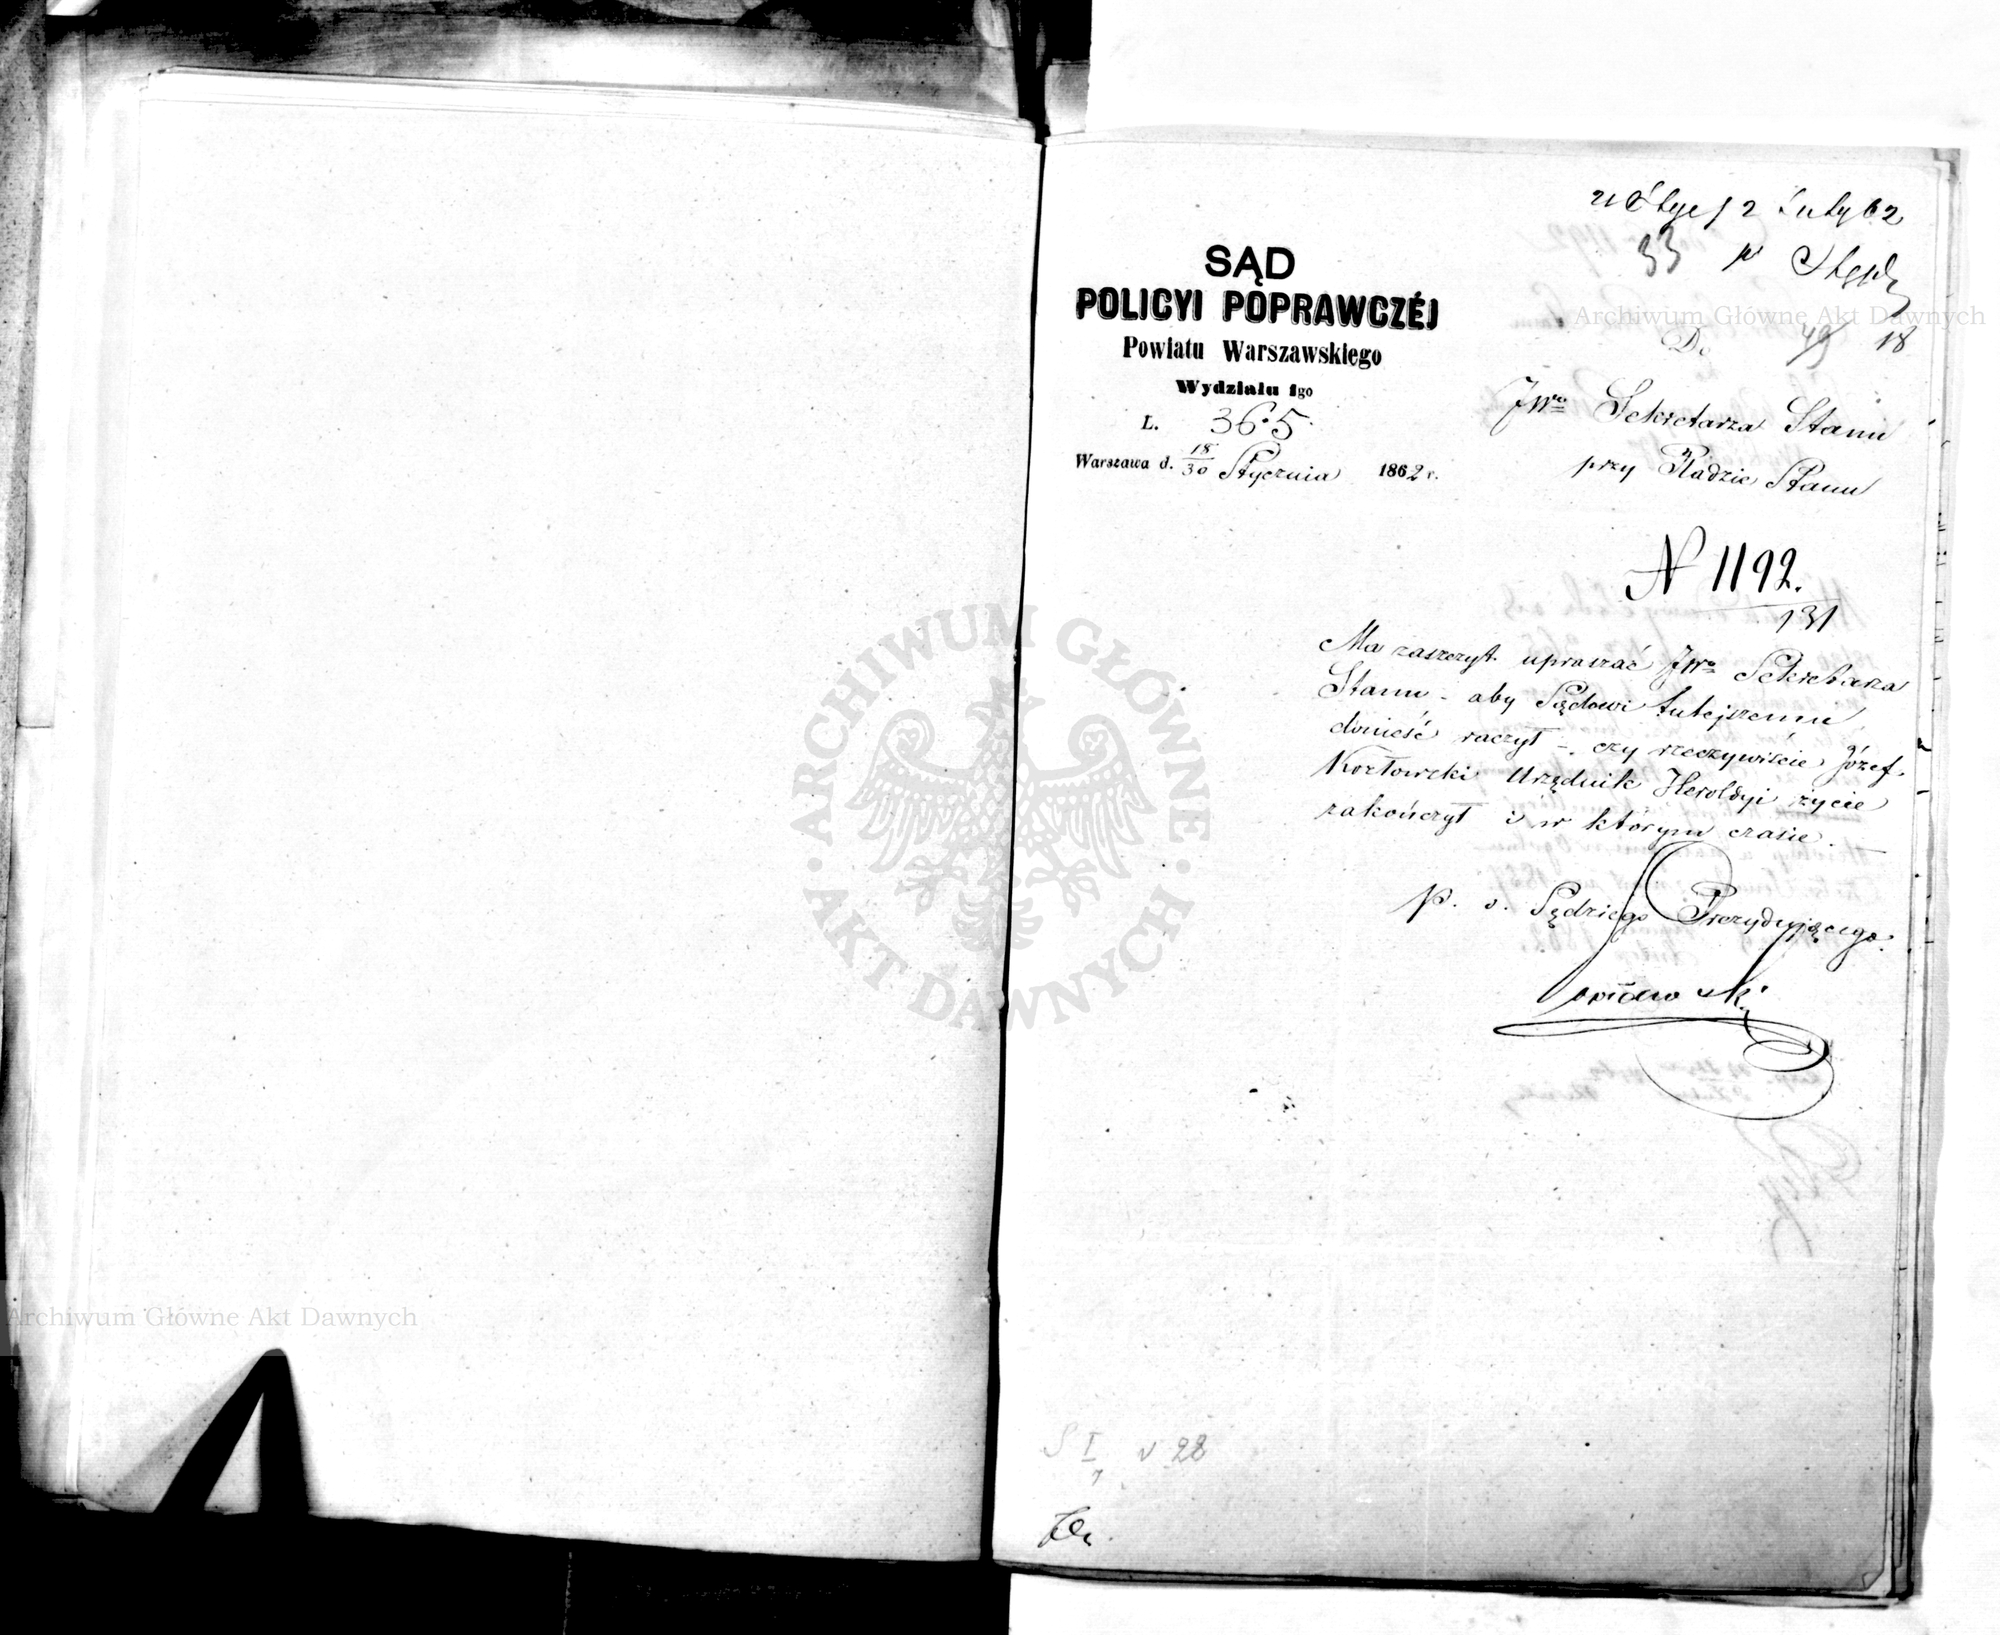 21 Stycz / 2 Luty 62
33
SĄD
POLICYI POPRAWCZÉJ
Powiatu Warszawskiego
Wydziału 1go
L. 365.
Warszawa d. 18/30 Stycznia 1862 r.
Do 49 18
JWo Sekretarza Stanu
przy Radzie Stanu
N 1192.
131
Ma zaszczyt upraszać JWo Sekretarza
Stanu - aby Sądowi tutejszemu
donieść raczył - czy rzeczywiście Józef
Kozłowski Urzędnik Heroldyi życie
zakończył i w którym czasie. -
p. o. Sędziego Prezydującego.
S I v 28
7
Archiwum Główne Akt Dawnych
Archiwum Główne Akt Dawnych
· ARCHIWUM GŁÓWNE · AKT DAWNYCH